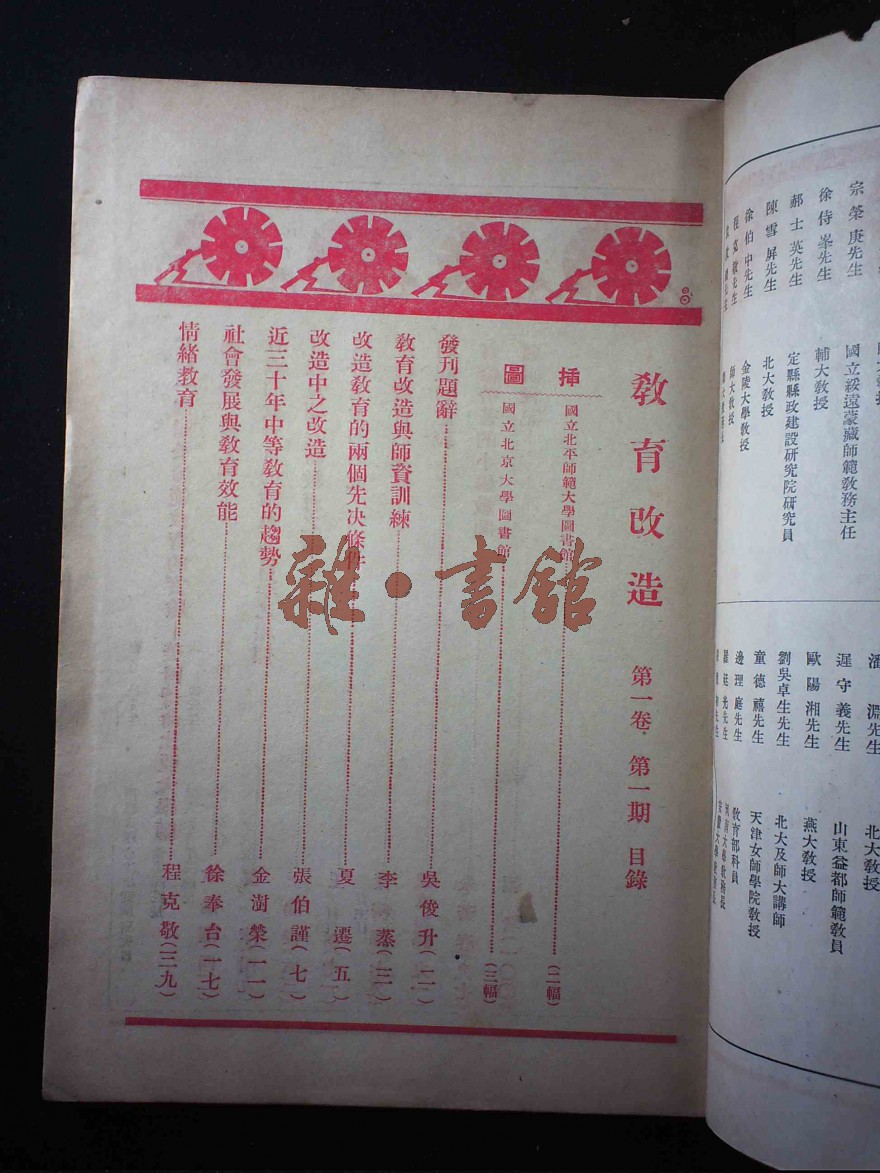 宗榮庚先生 國立綏遠蒙藏師範教務主任
徐侍峯先生 輔大教授
郝士英先生 定縣縣政建設研究院研究員
陳雪屏先生 北大教授
徐伯中先生 金陵大學教授
程克敬先生 師大教授
潘淵先生 北大教授
遲守義先生 山東益都師範教員
歐陽湘先生 燕大教授
劉吳卓生先生 北大及師大講師
童德禧先生 天津女師學院教授
邊理庭先生 教育部科員
教育改造 第一卷・第一期 目錄
插圖
國立北平師範大學圖書館(二幅)
國立北京大學圖書館(三幅)
發刊題辭 吳俊升(二)
教育改造與師資訓練 李蒸(三)
改造教育的兩個先決條件 夏遷(五)
改造中之改造 張伯謹(七)
近三十年中等教育的趨勢 金澍榮(一一)
社會發展與教育效能 徐奉台(一七)
情緒教育 程克敬(三九)
雜・書館